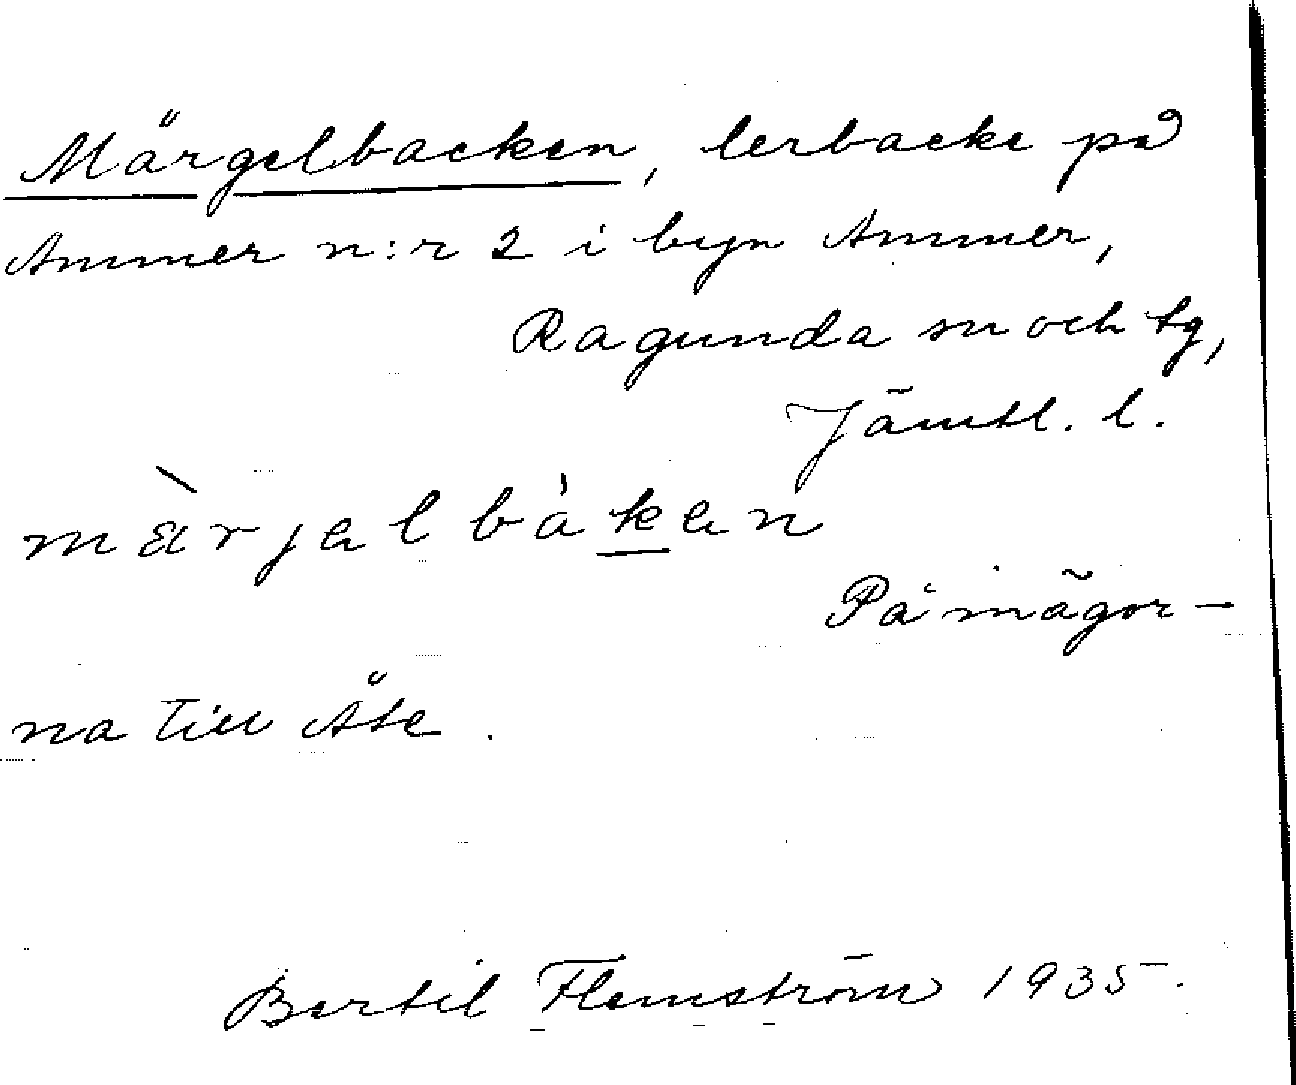 Märgelbacken, lerbacke på
Ammer n:r 2 i byn Ammer,
Ragunda sn och tg,
Jämtl. l.
mä̀rjəlbàkən
På inägor-
na till Åse.
Bertil Flemström 1935.